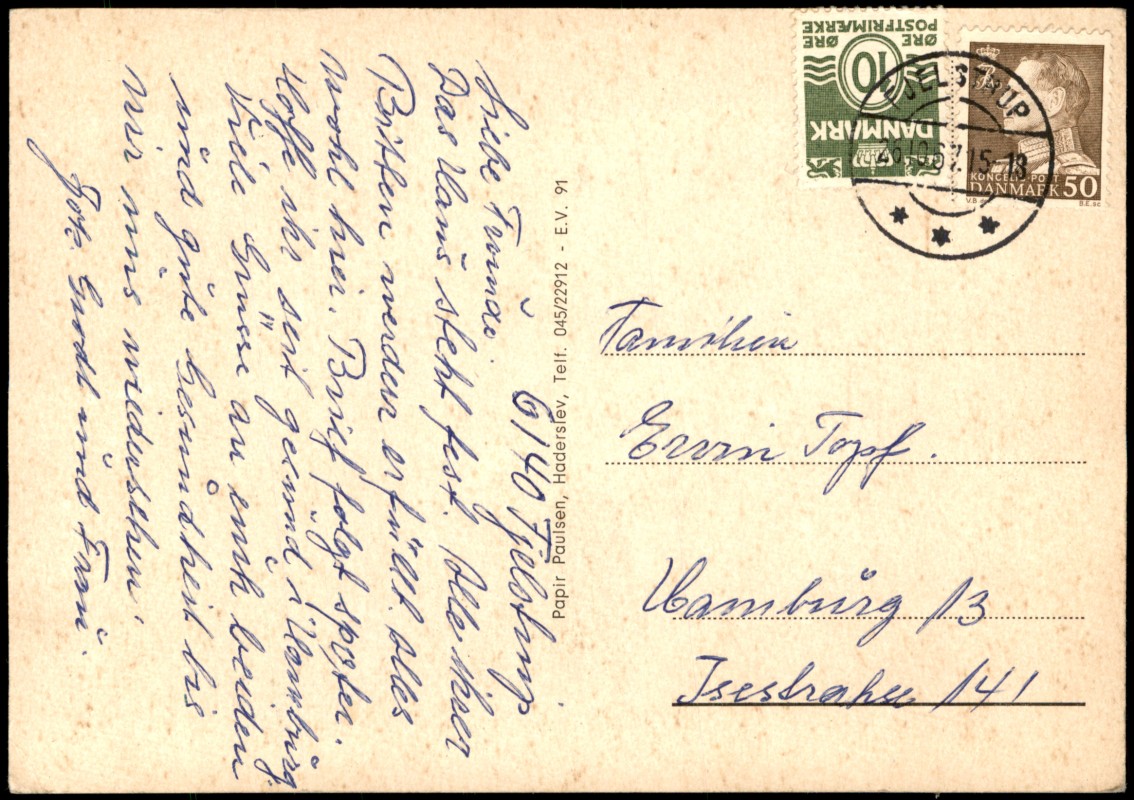 6140 Fjelstrup
Liebe Freunde.
Das Haus steht fest. Alle ihrer
Bitten werden erfüllt. Ales
wohl hier. Brief folgt später.
Hoffe ihr seit gesund i Hamburg.
Viele Grüsse an euch beiden
und gute Gesundheit bis
wir uns wiedersehen.
und
Papir Paulsen, Haderslev, Telf. 045/22912 - E.V. 91
ØRE ØRE
POSTFRIMÆRKE
10
DANMARK
KONGELIG POST
DANMARK 50
V.B. B.E.sc
FJELSTRUP
26.10.67.15-18
Familien
Ervin Topf.
Hamburg 13
Isestrahse 141